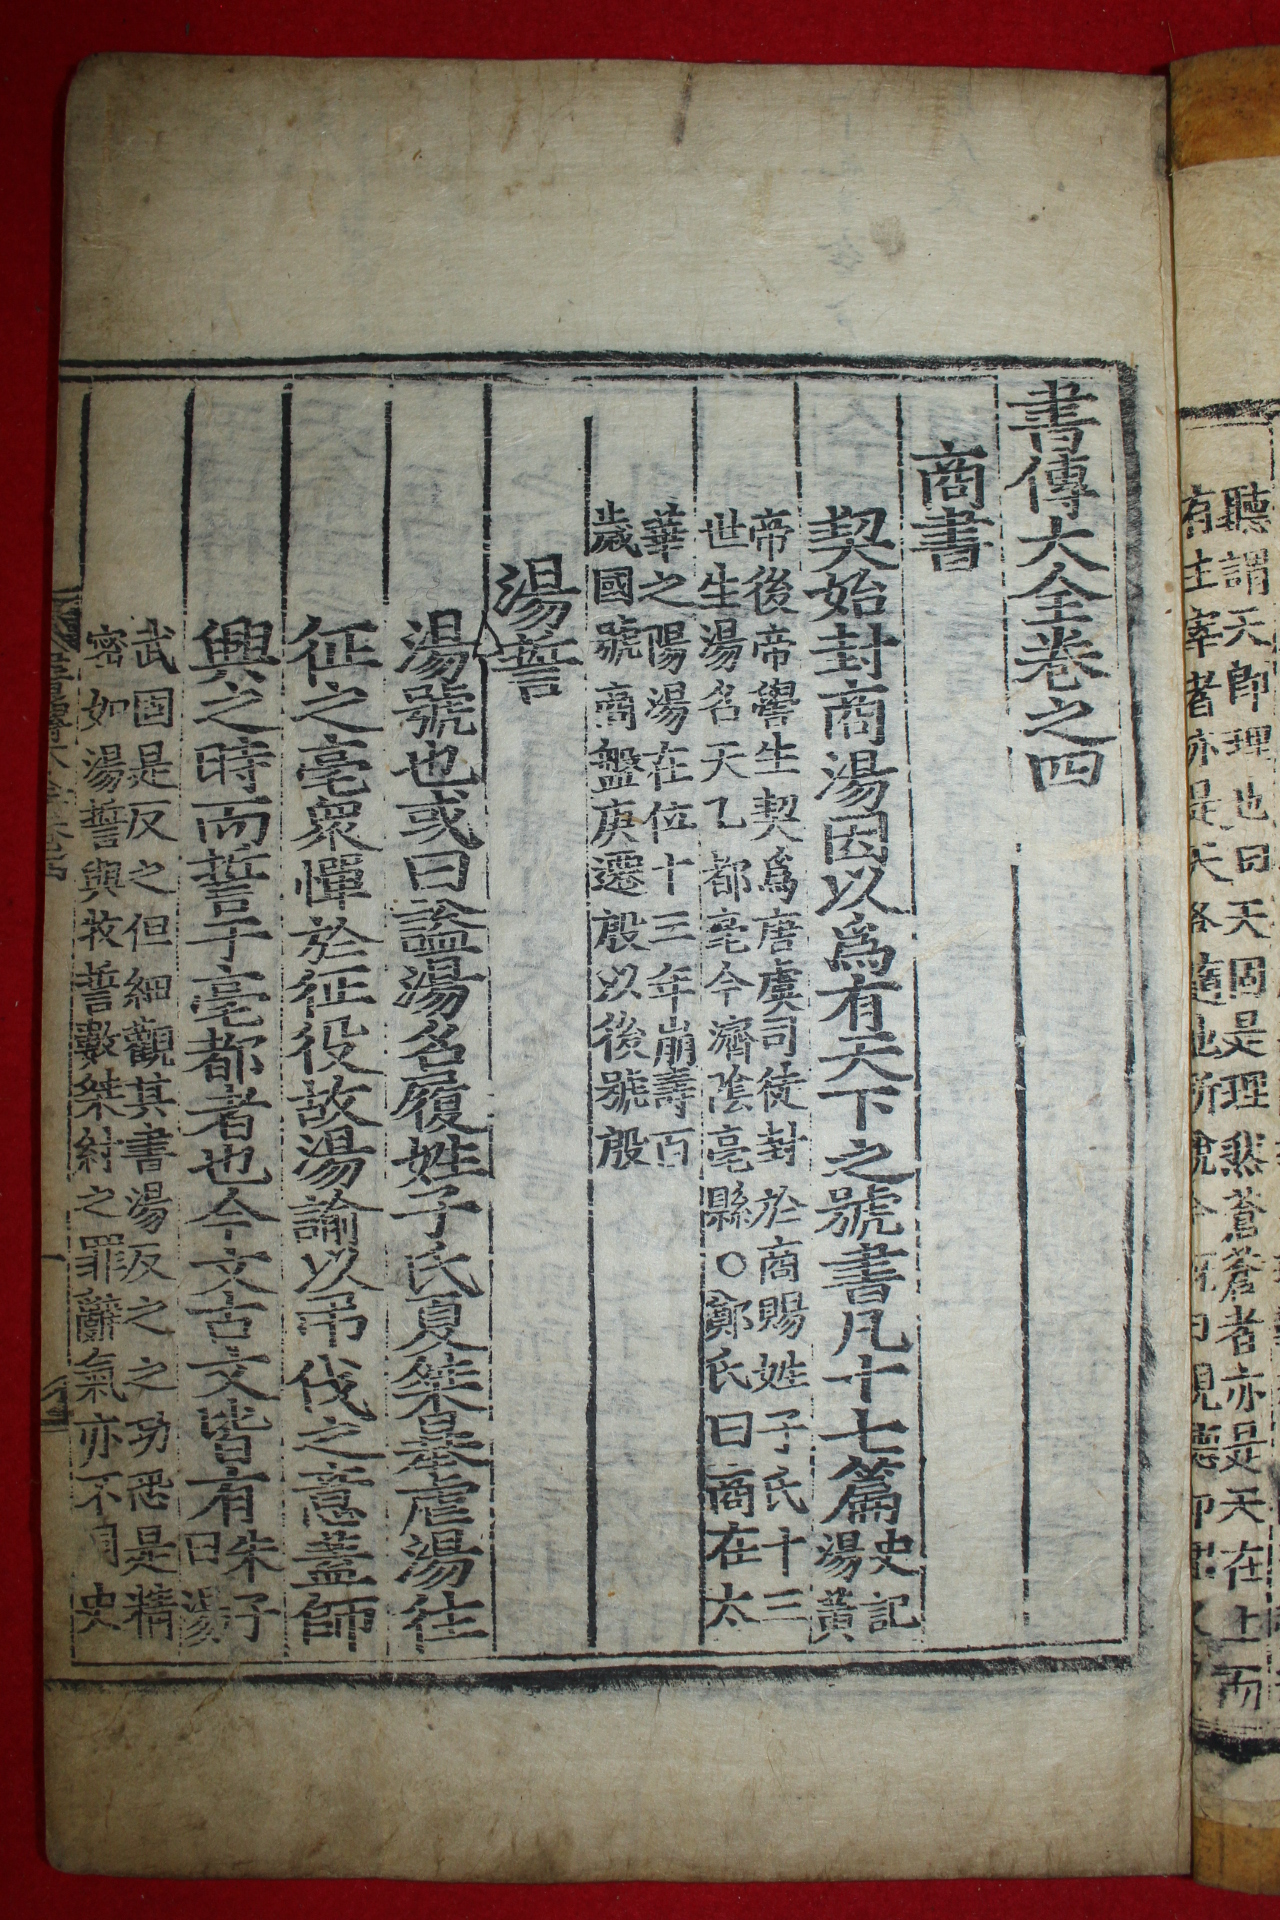 聽謂天卽理也曰天固是理然蒼蒼者亦是天在上而
有主宰者亦是天各隨他所說今
書傳大全卷之四
商書
契始封商湯因以爲有天下之號書凡十七篇
史記
湯黃
帝後帝嚳生契爲唐虞司徒封於商賜姓子氏十三
世生湯名天乙都亳今濟陰亳縣○鄭氏曰商在太
華之陽湯在位十三年崩壽百
歲國號商盤庚遷殷以後號殷
湯誓
湯號也或曰諡湯名履姓子氏夏桀暴虐湯往
征之亳衆憚於征役故湯諭以弔伐之意蓋師
興之時而誓于亳都者也今文古文皆有
朱子
曰湯
武固是反之但細觀其書湯反之之功恐是精
密如湯誓與牧誓數桀紂之罪辭氣亦不同史
書傳大全卷四
一